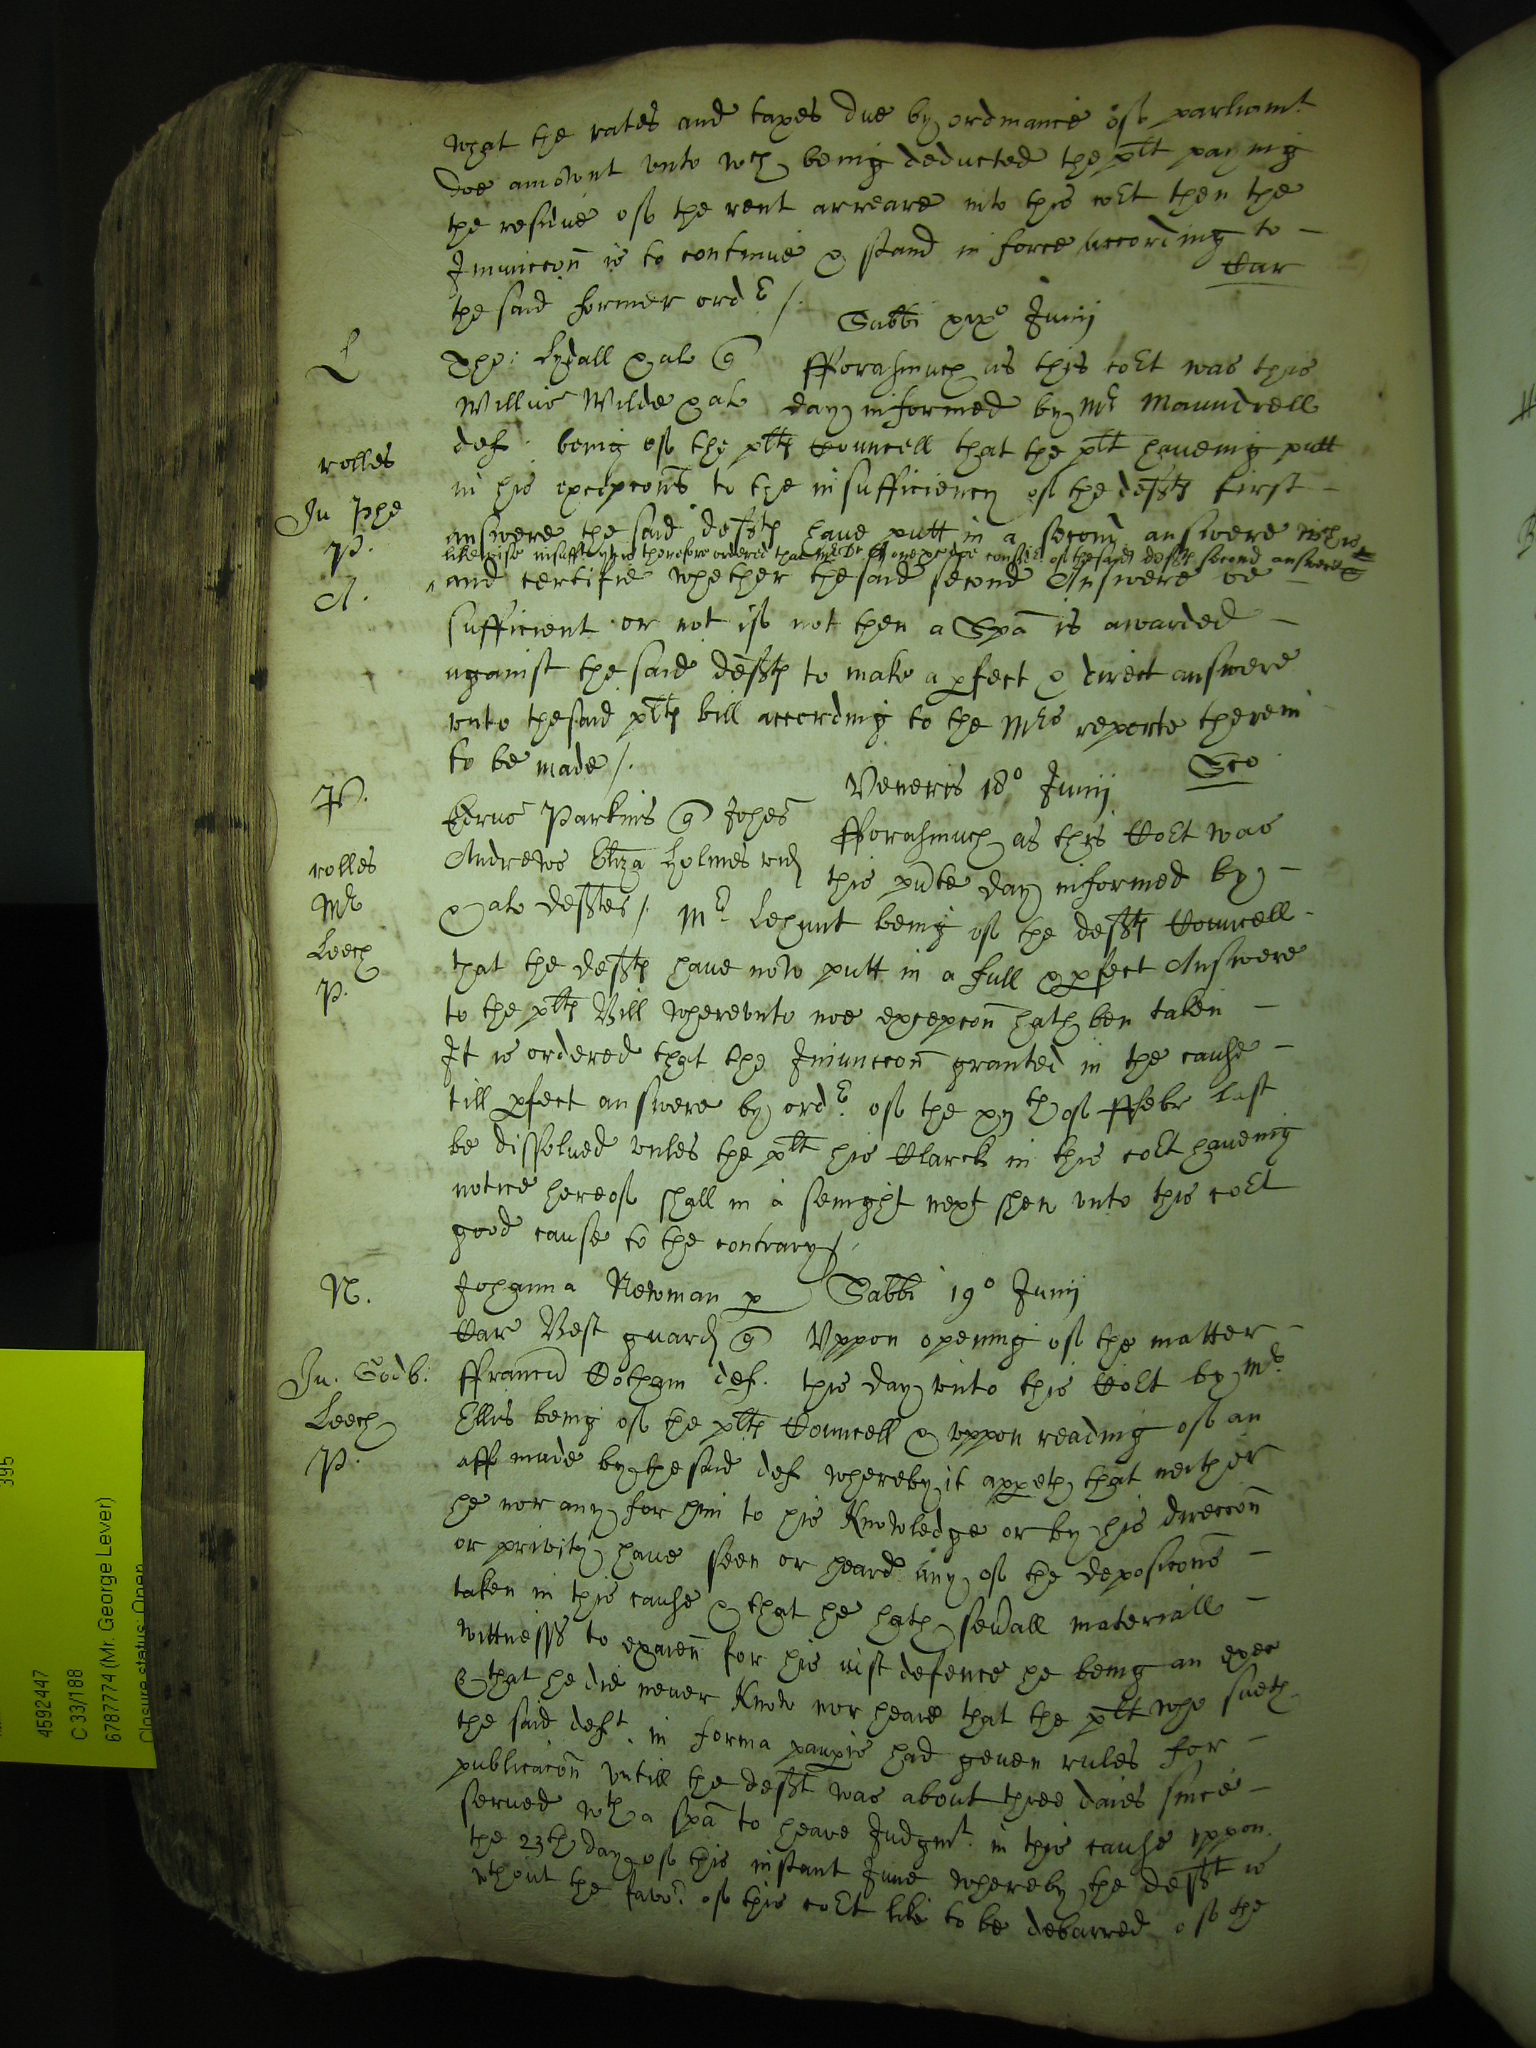 what the rates and taxes due by ordinance of parliamt
doe amount unto wch being deducted the plt paying
the residue of the rent arreare into this cort then the
Iniunccon is to continue & stand in force according to
the said former ordr /.
Car
Sabbi xixo Junij
L
Lydall & al con fforasmuch as this cort was this
Willus Wilde & al day informed by Mr Maundrell
def. being of the plts Councell that the plt haveing putt
rolles
in his excepcons to the insufficiency of the defts first
In
answere the said defts have putt in a second answere wch is
P.
likewise insufft it is therefore ordered that Mr Dr of the said defts second answere
A.
and certifie whether the said second Answere be
sufficient or not if not then a Spa is awarded
against the said defts to make a pfect & direct answere
unto the said plts bill according to the Mrs reporte therein
to be made /.
Sco
P.
Veneris 18o Junij
Parkins con Johes fforasmuch as this Cort was
rolles
Andrews Eliza Holmes vid this pnte day informed by
Mr
& al deftes /. Mr Lehunt being of the defts Councell
Leech
that the defts have now putt in a full & pfect Answere
P.
to the plts Bill whereunto noe excepcon hath ben taken
It is ordered that the Iniunccon granted in the cause
till pfect answere by ordr of the xijth of ffebr last
be dissolved unles the plt his Clarck in this cort haveing
notice hereof shall in a senight next shew unto this cort
good cause to the contrary /.
N.
Johanna Newman p Sabbi 19o Junij
Car Best guard con Uppon opening of the matter
In. Godb:
ffranci Cotham def. this day unto this Cort by Mr
Leech
Ellis being of the plts Councell & uppon reading of an
P.
aff made by the said def whereby it appeth that neither
he nor any for him to his Knowledge or by his direccon
or privity have seen or heard any of the deposicons
taken in this cause & that he hath sevall materiall
wittnesss to examen for his iust defence he being an exec
& that he did never Know nor heare that the plt who sueth
the said deft. in forma paupis had geven rules for
publicacon untill the deft was about three daies since
served wth a spa to heare Judgmt. in this cause uppon
the 23th day of this instant June whereby the deft is
wthout the favor of this cort like to be debarred of the
395
4592447
C 33/188
6787774 (Mr. George Lever)
Closure status: Open